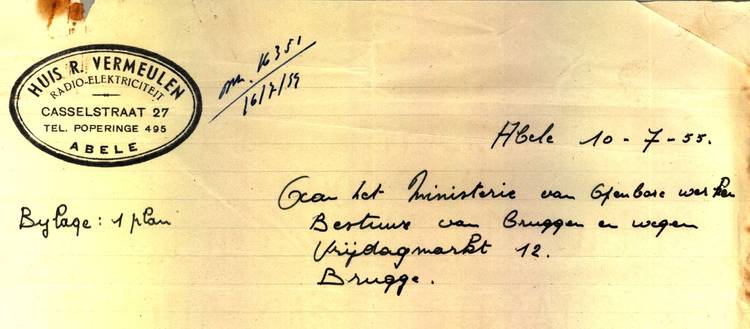 HUIS R. VERMEULEN
RADIO-ELEKTRICITEIT
CASSELSTRAAT 27
TEL. POPERINGE 495
ABELE
16351
16/7/55
Abele 10-7-55.
Aan het Ministerie van Openbare werken
Bestuur van Bruggen en wegen
Vrijdagmarkt 12.
Brugge.
Bylage: 1 plan